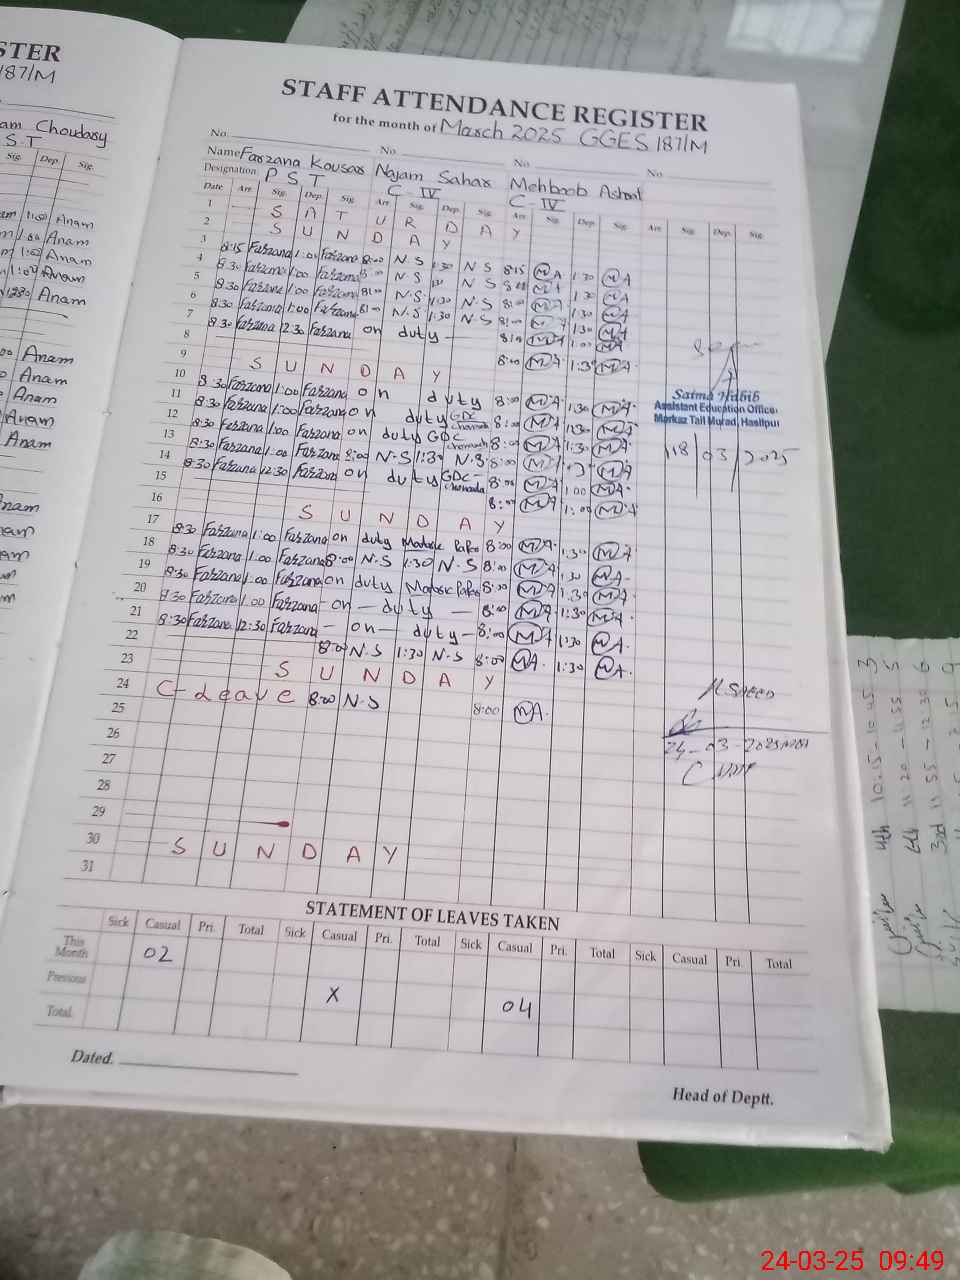 STER
187/M
am Choudary
S.T
Sig. Dep. Sig.
1:00 Anam
1:00 Anam
1:00 Anam
1:00 Anam
1230 Anam
Anam
Anam
Anam
Anam
Anam
STAFF ATTENDANCE REGISTER
for the month of March 2025 GGES 187/M
No. No. No. No.
Name Farzana Kousar Najam Sahar Mehboob Ashraf
Designation P S T C - IV C - IV
Date Arr. Sig. Dep. Sig. Arr. Sig. Dep. Sig. Arr. Sig. Dep. Sig. Arr. Sig. Dep. Sig.
1 S A T U R D A Y
2 S U N D A Y
3 8:15 Farzana 1:00 Farzana 8:00 N.S 1:30 N S 8:15 MA 1:30 MA
4 8:30 Farzana 1:00 Farzana 8:00 N S 1:30 N S 8:00 MA 1:30 MA
5 8:30 Farzana 1:00 Farzana 8:00 N.S. 1:30 N.S 8:00 MA 1:30 MA
6 8:30 Farzana 1:00 Farzana 8:00 N.S 1:30 N.S 8:00 MA 1:30 MA
7 8:30 Farzana 12:30 Farzana on duty 8:00 MA 1:00 MA
8 8:00 MA 1:30 MA
9 S U N D A Y
10 8:30 Farzana 1:00 Farzana on duty 8:00 MA 1:30 MA
11 8:30 Farzana 1:00 Farzana on duty GDC 8:00 MA 1:30 MA
12 8:30 Farzana 1:00 Farzana on duty GDC 8:00 MA 1:30 MA
13 8:30 Farzana 1:00 Farzana 8:00 N-S 1:30 N.S 8:00 MA MA
14 8:30 Farzana 12:30 Farzana on duty GDC 8:00 MA 1:00 MA
15 8:00 MA 1:00 MA
16 S U N D A Y
17 8:30 Farzana 1:00 Farzana on duty 8:00 MA 1:30 MA
18 8:30 Farzana 1:00 Farzana 8:00 N.S 1:30 N.S 8:00 MA 1:30 MA
19 8:30 Farzana 1:00 Farzana on duty 8:00 MA 1:30 MA
20 8:30 Farzana 1:00 Farzana - on - duty - 8:00 MA 1:30 MA
21 8:30 Farzana 12:30 Farzana - on - duty - 8:00 MA 1:30 MA
22 8:00 N.S 1:30 N.S 8:00 MA 1:30 MA
23 S U N D A Y
24 C - Leave 8:00 N.S 8:00 MA
25
26
27
28
29
30 S U N D A Y
31
Saima Habib
Assistant Education Officer
Markaz Tail Murad, Hasilpur
18/03/2025
24-03-2025
STATEMENT OF LEAVES TAKEN
Sick Casual Pri. Total Sick Casual Pri. Total Sick Casual Pri. Total Sick Casual Pri. Total
This Month 02
Previous X 04
Total
Dated.
Head of Deptt.
4th 10:15-10:45 3
11:20-11:55 5
3rd 11:55-12:30 6
24-03-25 09:49